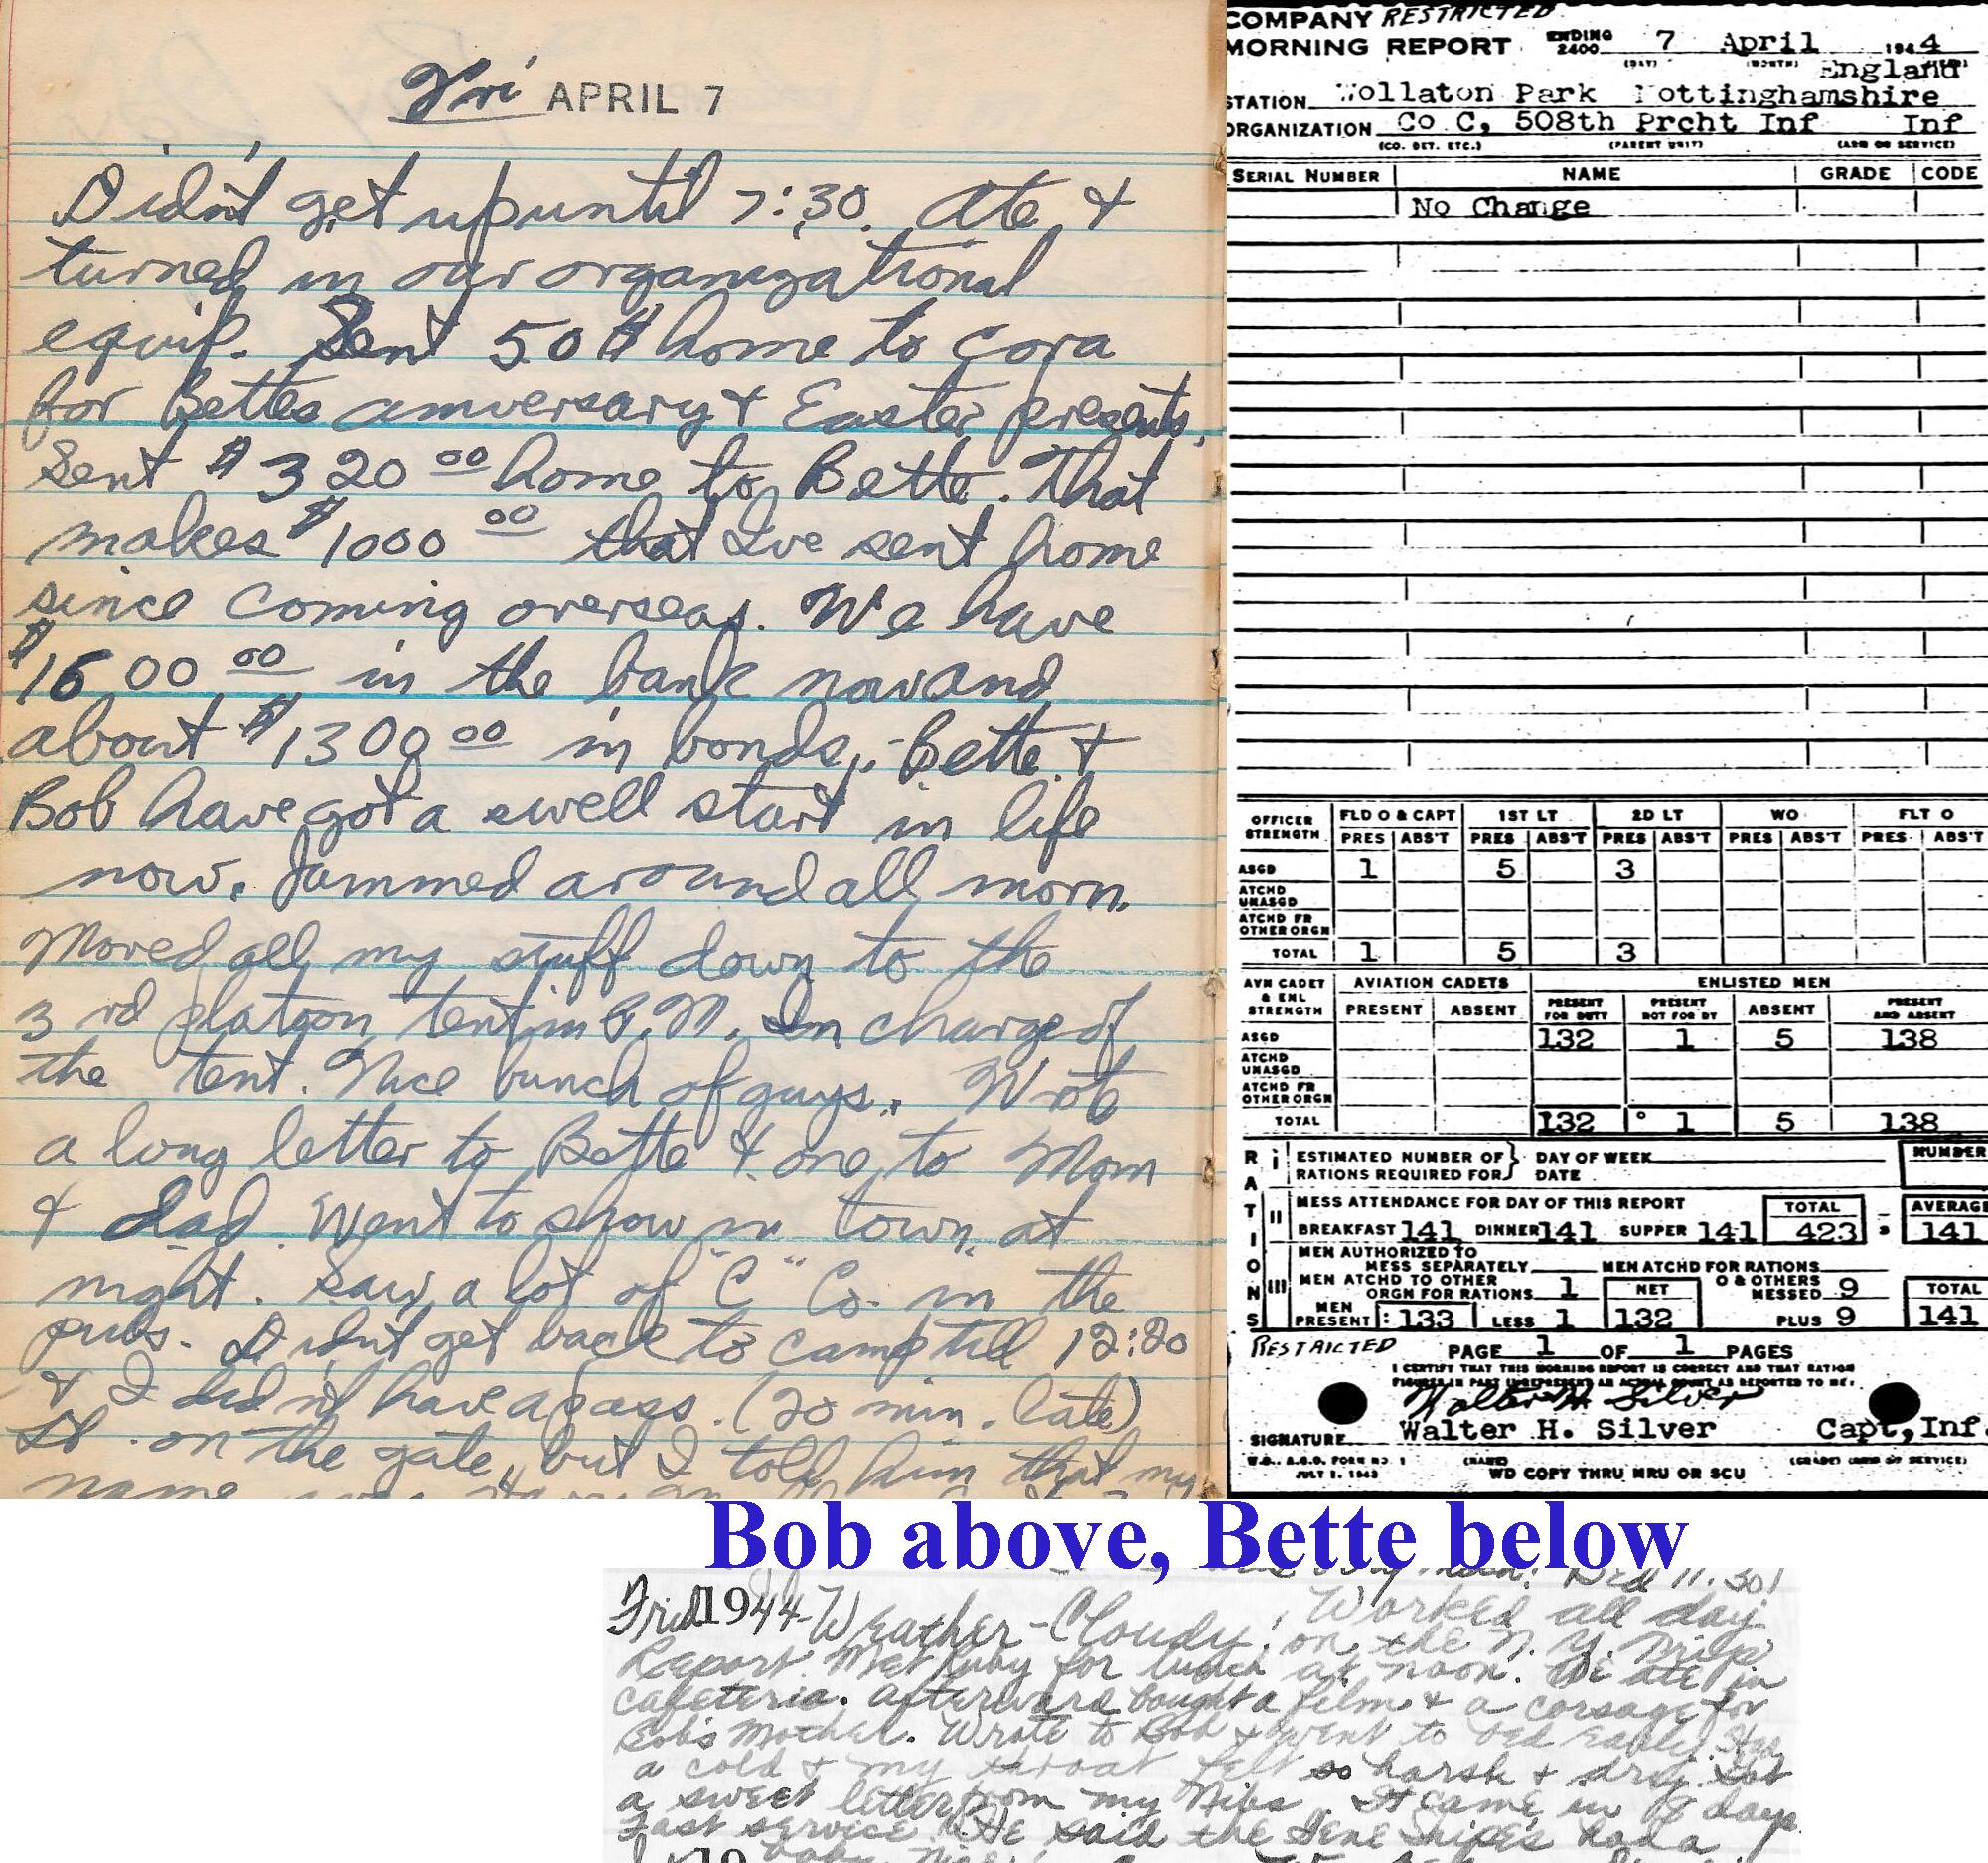 Fri APRIL 7
Didn't get up until 7:30. Ate &
turned in our organizational
equip. Sent 50$ home to Cora
for Bettes anniversary & Easter presents.
Sent $320.00 home to Bette. That
makes $1000.00 that I've sent home
since coming overseas. We have
$1600.00 in the bank now and
about $1300.00 in bonds,-Bette &
Bob have got a swell start in life
now. Jammed around all morn.
Moved all my stuff down to the
3rd platoon tent in P.M. Im charge of
the tent. Nice bunch of guys. Wrote
a long letter to Bette & one to Mom
& dad. Went to show in town at
night. Saw a lot of "C" Co. in the
pubs. Didnt get back to camp till 12:20
& I didn't have a pass. (20 min. late)
Lt. on the gate, but I told him that my
name was
COMPANY RESTRICTED
MORNING REPORT ENDING 2400 7 April 1944
(DAY) (MONTH)
England
STATION Wollaton Park Nottinghamshire
ORGANIZATION Co C, 508th Prcht Inf Inf
(CO. DET. ETC.) (PARENT UNIT) (ARM OR SERVICE)
SERIAL NUMBER NAME GRADE CODE
No Change
OFFICER STRENGTH FLD O & CAPT 1ST LT 2D LT WO FLT O
PRES ABS'T PRES ABS'T PRES ABS'T PRES ABS'T PRES ABS'T
ASGD 1 5 3
ATCHD UNASGD
ATCHD FR OTHER ORGN
TOTAL 1 5 3
AVN CADET & ENL STRENGTH AVIATION CADETS ENLISTED MEN
PRESENT ABSENT PRESENT FOR DUTY PRESENT NOT FOR DY ABSENT PRESENT AND ABSENT
ASGD 132 1 5 138
ATCHD UNASGD
ATCHD FR OTHER ORGN
TOTAL 132 1 5 138
RATIONS
I ESTIMATED NUMBER OF RATIONS REQUIRED FOR } DAY OF WEEK DATE NUMBER
II MESS ATTENDANCE FOR DAY OF THIS REPORT TOTAL AVERAGE
BREAKFAST 141 DINNER 141 SUPPER 141 423 141
III MEN AUTHORIZED TO MESS SEPARATELY MEN ATCHD FOR RATIONS
MEN ATCHD TO OTHER ORGN FOR RATIONS 1 NET O & OTHERS MESSED 9 TOTAL
MEN PRESENT: 133 LESS 1 132 PLUS 9 141
RESTRICTED PAGE 1 OF 1 PAGES
I CERTIFY THAT THIS MORNING REPORT IS CORRECT AND THAT RATION
FIGURES IN PART III REPRESENT AN ACTUAL COUNT AS REPORTED TO ME:
Walter H. Silver
SIGNATURE Walter H. Silver Capt, Inf.
W.D., A.G.O. FORM NO. 1 (NAME) (GRADE) (ARM OF SERVICE)
JULY 1, 1943 WD COPY THRU MRU OR SCU
Bob above, Bette below
Bed 11:30!
Frid 1944-Weather-Cloudy! Worked all day
on the N.Y. Trip
Report. Met Ruby for lunch at noon. We ate in
cafeteria. Afterward bought a film & a corsage for
Bob's Mother. Wrote to Bob & went to bed early. Has
a cold & my throat felt so harsh & dry. Got
a sweet letter from my Nibs. It came in 8 days
Fast service. He said the Gene Snipes had a
baby. Nice!
19